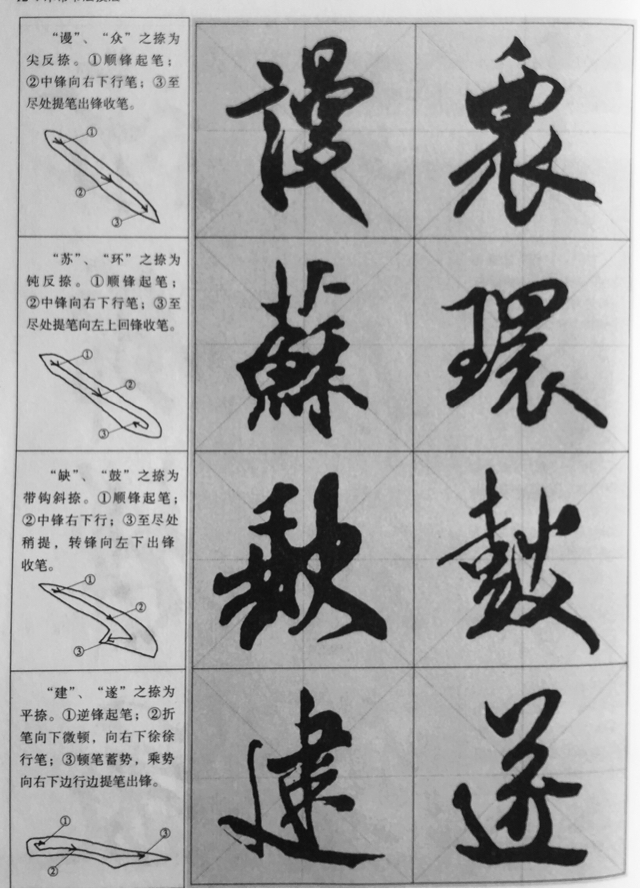 “谩”、“众”之捺为
尖反捺。①顺锋起笔；
②中锋向右下行笔；③至
尽处提笔出锋收笔。
①
②
③
謾 衆
“苏”、“环”之捺为
钝反捺。①顺锋起笔；
②中锋向右下行笔；③至
尽处提笔向左上回锋收笔。
①
②
③
蘇 環
“缺”、“鼓”之捺为
带钩斜捺。①顺锋起笔；
②中锋右下行；③至尽处
稍提，转锋向左下出锋
收笔。
①
②
③
缺 鼓
“建”、“遂”之捺为
平捺。①逆锋起笔；②折
笔向下微顿，向右下徐徐
行笔；③顿笔蓄势，乘势
向右下边行边提笔出锋。
①
②
③
建 遂